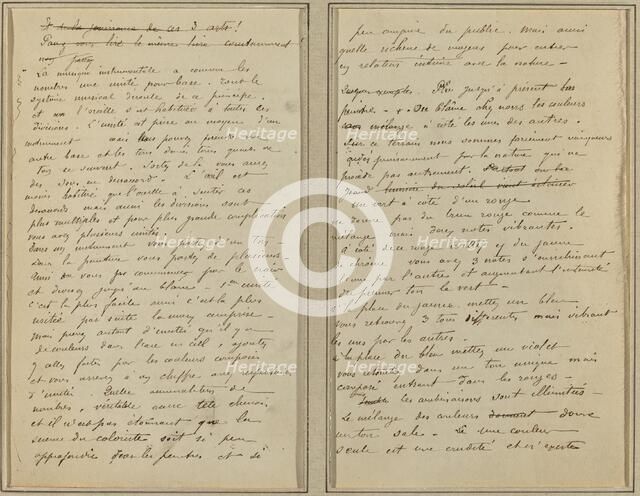 et de la jouissance de ces 3 arts!
Pouvez vous lire le même livre constamment!
vous partez
La musique instrumentale a comme les
nombres une unité pour base. Tout le
système musical découle de ce principe.
et l'oreille s'est habituée à toutes ces
divisions. L'unité est prise au moyen d'un
instrument mais vous pouvez prendre une
autre base et les tons demi tons quarts de
ton se suivront. Sortez de là vous aurez
des sons en désaccord. L'œil est
moins habitué que l'oreille à sentir ces
désaccords mais aussi les divisions sont
plus multiples et pour plus grande complication
vous avez plusieurs unités.
Dans un instrument vous partez d'un ton
Dans la peinture vous partez de plusieurs
Ainsi vous commencez par le noir
et divisez jusqu'au blanc - 1ère unité
c'est la plus facile aussi c'est la plus
usitée par suite la mieux comprise
mais prenez autant d'unités qu'il y a
de couleurs dans l'arc en ciel, ajoutez
y celles faites par les couleurs composées
et vous arrivez à un chiffre assez respectable
d'unités. Quelle accumulation de
nombres, véritable casse tête chinois
et il n'est pas étonnant que la
science du coloriste soit si peu
approfondie par les peintres et si
peu comprise du public. Mais aussi
quelle richesse de moyens pour entrer
en relation intime avec la nature -
jusqu'à présent
On blâme chez nous les couleurs
sans mélange à côté les unes des autres.
Sur ce terrain nous sommes forcément vainqueurs
aidés puissamment par la nature qui ne
procède pas autrement.
un vert à côté d'un rouge
ne donne pas du brun rouge comme le
mélange mais deux notes vibrantes.
à côté de ce rouge mettez du jaune
de chrome vous avez 3 notes s'enrichissant
l'une par l'autre et augmentant l'intensité
du premier ton le vert -
à la place du jaune mettez un bleu
vous retrouvez 3 tons différents mais vibrant
les uns par les autres.
à la place du bleu mettez un violet
vous retombez dans un ton unique mais
composé entrant dans les rouges -
les combinaisons sont illimitées
Le mélange des couleurs donne
un ton sale. Une couleur
seule est une crudité et n'existe
Heritage
Heritage
Heritage
Heritage
Heritage
Heritage
Heritage
Heritage
Heritage
Heritage
C